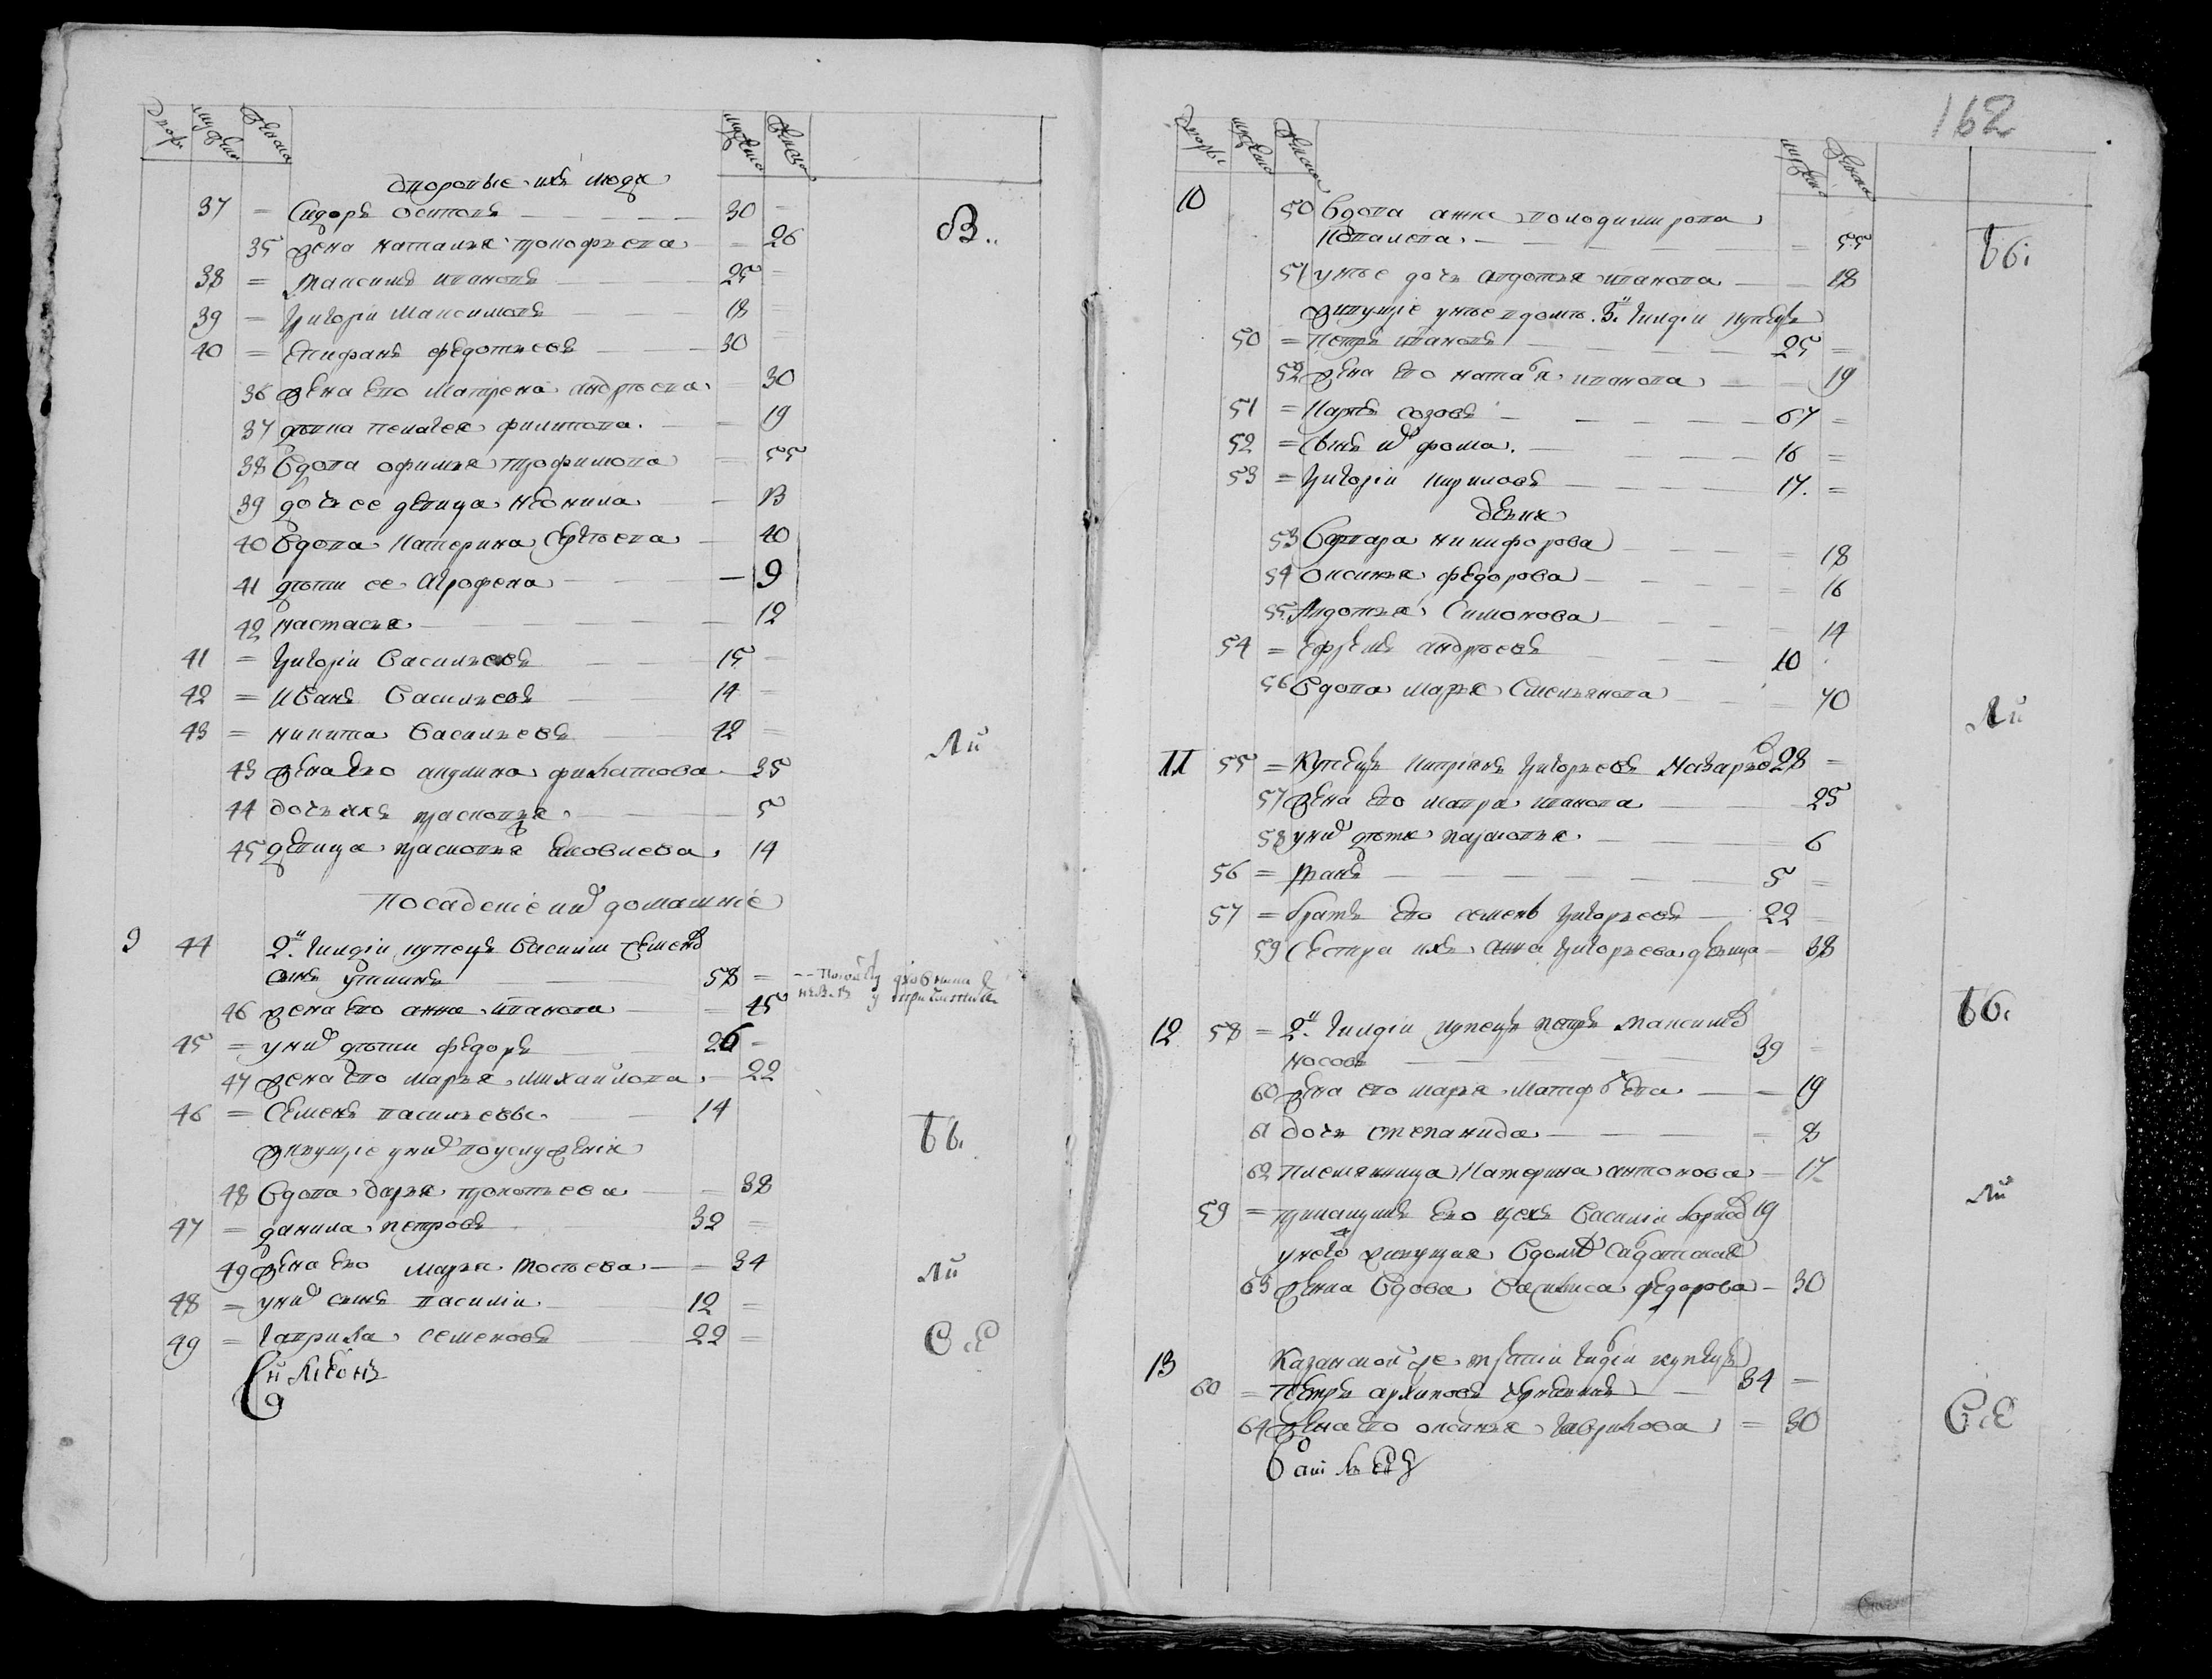 Дворы
мужеска
женска
мужеска
женска
дворовые ихъ люди
37 = Сидоръ осиповъ 30 =
35 жена наталья прокофьева = 26
В..
38 = Максимъ ивановъ 25 =
39 = григорій Максимовъ 18 =
40 = епифанъ федотьевъ 30 =
36 жена ево Матрена андреева 30
37 филипова. 19
38 вдова офимья трофимова 55
39 дочь ее девица неонила 13
40 вдова катерина сергѣева 40
41 дѣти ее Агрофена 9
42 настасья 12
41 = григорій васильевъ 15 =
42 = иванъ васильевъ 14 =
43 = никита васильевъ 42 =
Ли
43 жена ево акулина филатова 35
44 дочь ихъ прасковья 5
45 девица прасковья яковлева 14
Посадскіе и ихъ домашніе
9 44 2й гилдіи купецъ василий семенов
сынъ 58 =
46 жена ево анна иванова = 45
45 = у них дѣти федоръ 26 =
47 жена ево марья михайлова 22
46 = семенъ васильевъ 14
живущіе у них в услуженіи
бв.
48 вдова дарья прокопьева 38
47 = данила петровъ 32 =
49 жена ево марья = 34
Ли
48 = у них сынъ василій 12 =
49 = гаврила семеновъ 22 =
С.Е
162
Дворы
мужеска
женска
мужеска
женска
10 50 вдова анна володимирова
= 55
бв.
51 у нее дочь авдотья иванова 18
живущіе у нее в доме гилдіи купецъ
50 = петръ ивановъ 25 =
52 жена ево наталья иванова 19
51 = карпъ созовъ 67 =
52 = сынъ ево фома. 16 =
53 = григорій кириловъ 17. =
девки
53 варвара никифорова 18
54 оксинья федорова 16
55 Авдотья Симонова 14
54 = ефремъ андреевъ 10
56 вдова марья емельянова 70
Ли
11 55 = купецъ кипріянъ григорьевъ 28 =
57 жена ево мавра иванова 25
58 у них дѣти парасковья 6
56 = иванъ 5 =
57 = братъ ево семенъ григорьевъ 22 =
59 сестра ихъ анна григорьева девица 38
бв.
12 58 = 2й гилдіи купецъ петръ максимов
носовъ 39 =
60 жена ево марья матфѣева 19
61 дочь степанида = 8
62 племянница катерина антонова 17
Ли
59 = ево василій 19
у него живущая в доме
63 женка вдова василиса федорова 30
13 Казанской третей гилдіи купецъ
60 = Петръ архиповъ 34 =
64 жена ево оксинья гаврилова = 30
С.Е